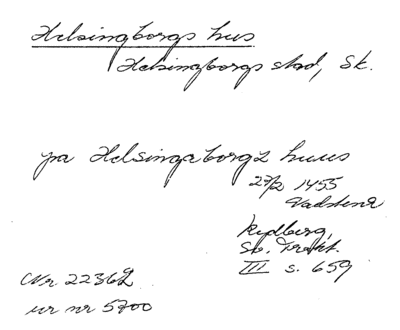 Helsingborgs hus
Helsingborgs stad, Sk.
pa Helsingaborgz huus
27/2 1455
Vadstena
Rydberg,
Sv. Trakt.
III s. 659
Nr 22362
ur nr 5700